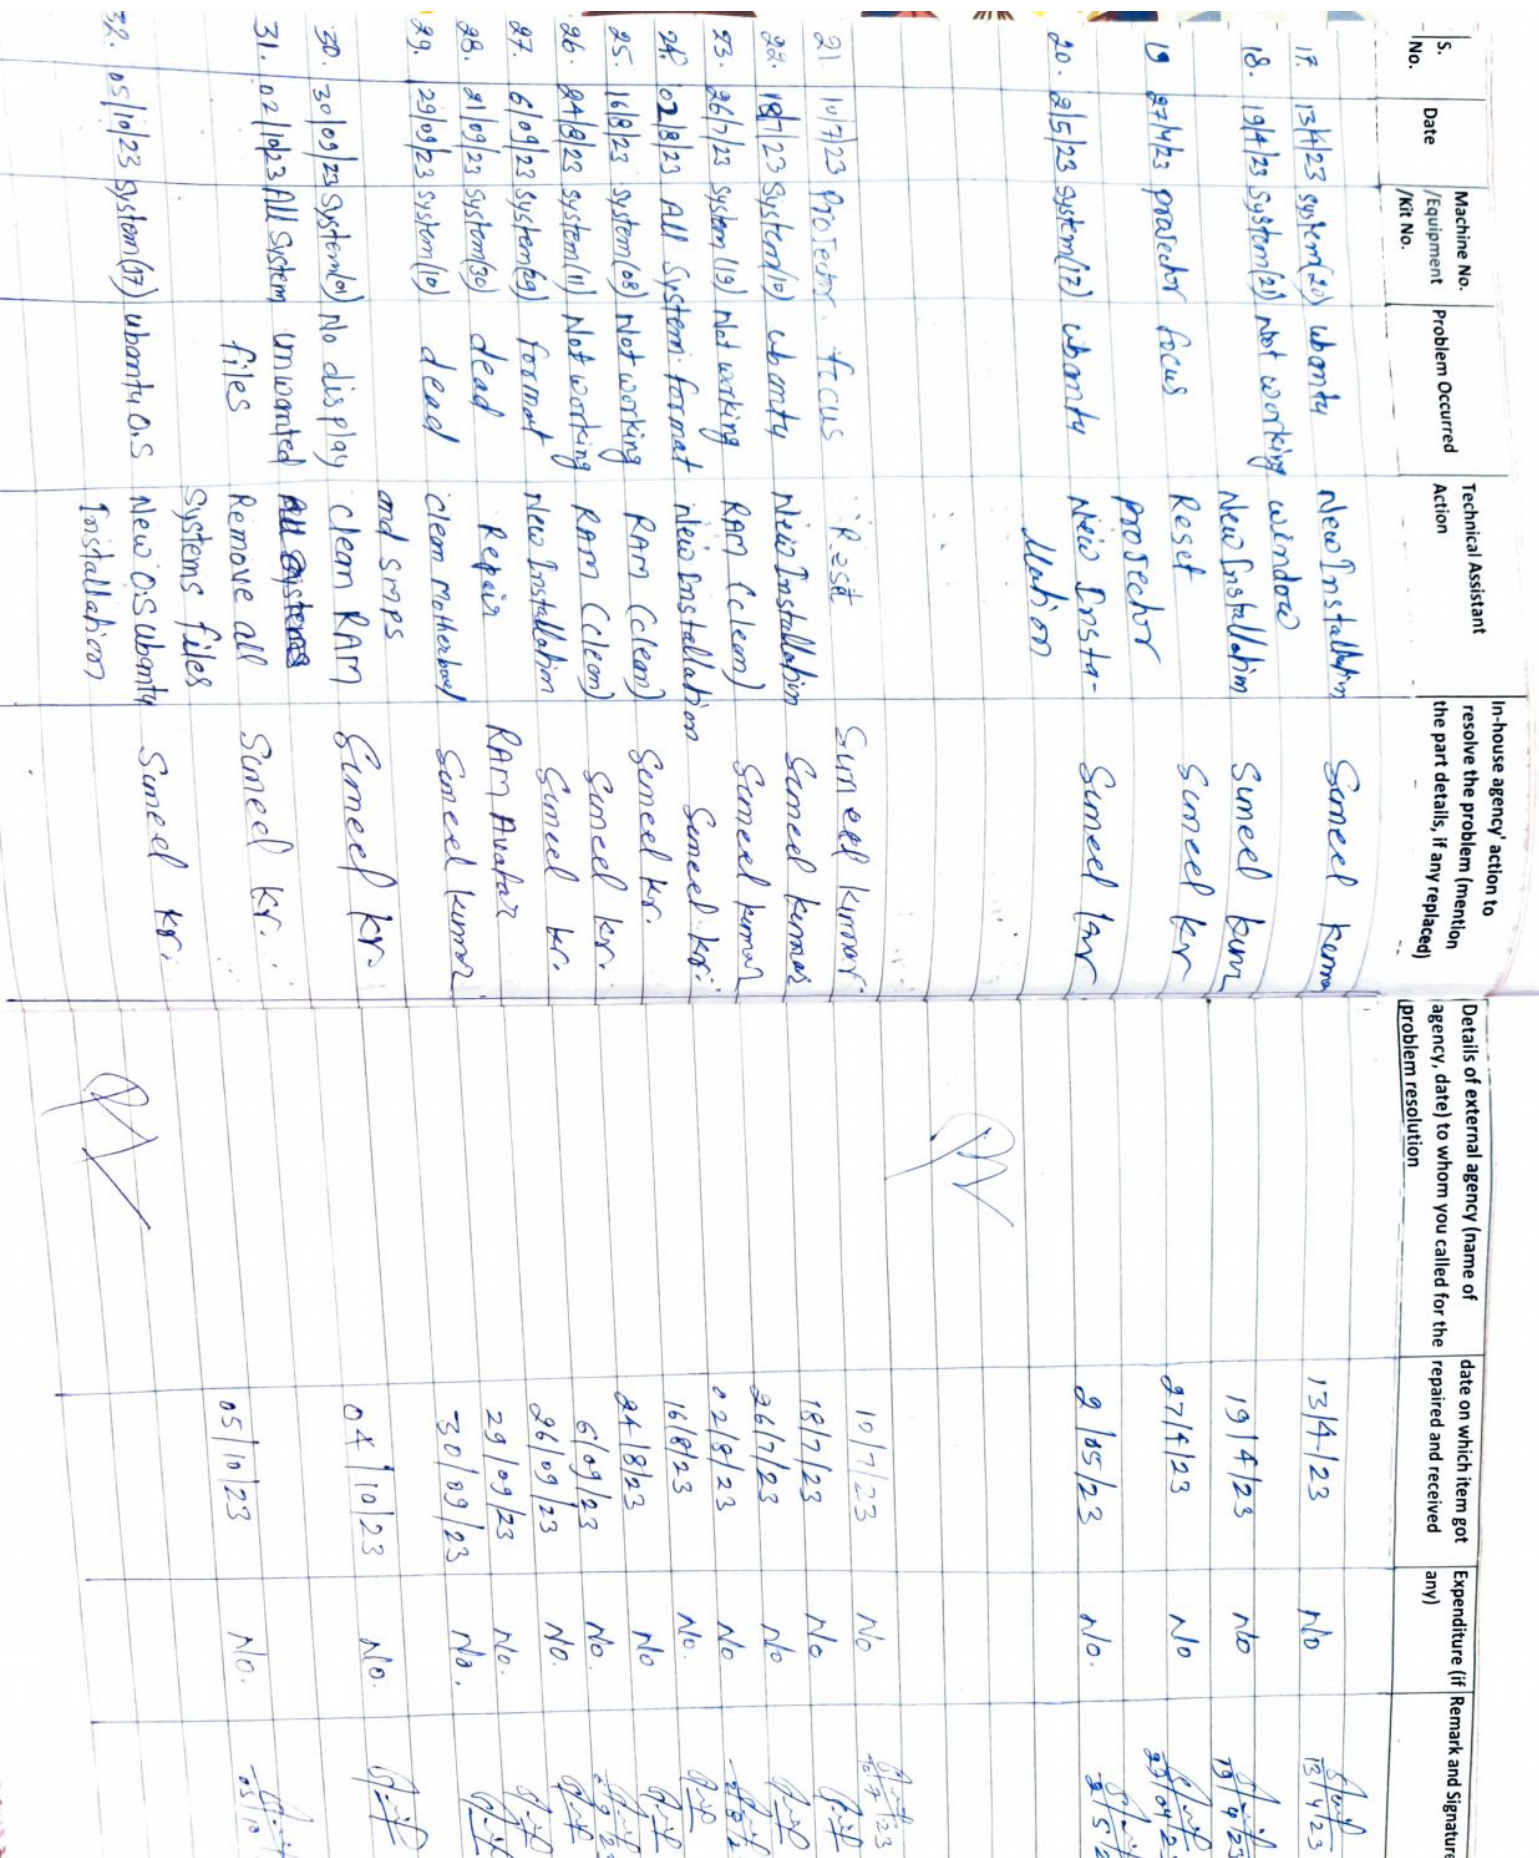 S. No. Date Machine No. /Equipment /Kit No. Problem Occurred Technical Assistant Action In-house agency' action to resolve the problem (mention the part details, if any replaced) Details of external agency (name of agency, date) to whom you called for the problem resolution date on which item got repaired and received Expenditure (if any) Remark and Signature
17. 13/4/23 system(20) ubantu New Installation Suneel 13/4/23 No 13/4/23
window
18. 19/4/23 System(21) Not working New Installation Suneel kum 19/4/23 No 19/4/23
19 27/4/23 projector focus Reset Suneel kr 27/4/23 No
projector
20. 2/5/23 system(12) ubantu New Insta- Suneel 2/05/23 No.
llation
21. 10/7/23 Projector focus Reset Suneel kumar 10/7/23 No 10/7/23
22. 18/7/23 System(10) ubantu New Installation Suneel kumar 18/7/23 No
23. 26/7/23 system(19) Not working RAM (clean) Suneel kumar 26/7/23 No
24. 02/8/23 All System format New Installation Suneel kr. 02/8/23 No
25. 16/8/23 system(08) Not working RAM (clean) Suneel kr. 16/8/23 No.
26. 24/8/23 system(11) Not working RAM (clean) Suneel kr. 24/8/23 No
27. 6/09/23 system(29) format New Installation Suneel kr. 6/09/23 No.
28. 21/09/23 system(30) dead Repair RAM Avatar 26/09/23 No.
29. 29/09/23 system(10) dead clean Motherboard Suneel kumar 29/09/23 No.
and smps 30/09/23 No.
30. 30/09/23 System(01) No display clean RAM Suneel kr. 04/10/23 No.
All Systems
31. 02/10/23 All System unwanted Remove all Suneel kr. 05/10/23 No. 05/10
files Systems files
32. 05/10/23 System(17) ubantu O.S New O.S ubantu Suneel kr.
Installation